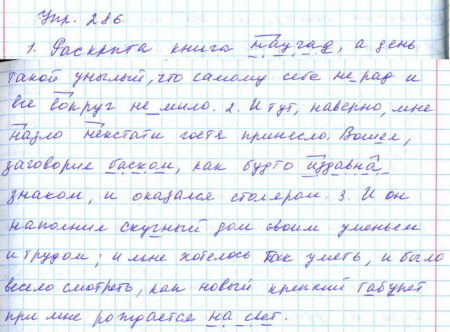 Упр. 286.
1. Раскрыта книга наугад, а день
такой унылый, что самому себе не рад и
все вокруг не мило. 2. И тут, наверно, мне
назло некстати гостя принесло. Вошел,
заговорил баском, как будто издавна
знаком, и оказался столяром. 3. И он
наполнил скучный дом своим уменьем
и трудом; и мне хотелось так уметь, и было
весело смотреть, как новый крепкий табурет
при мне рождается на свет.